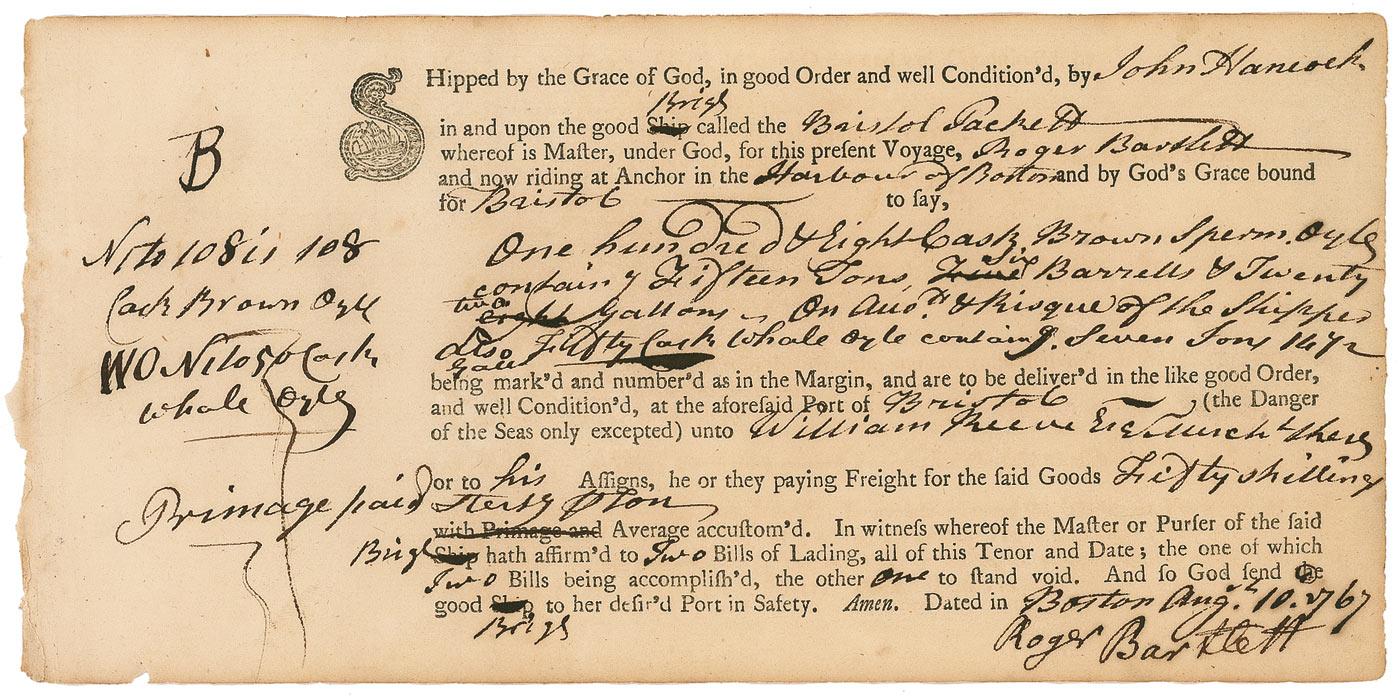 B
No 1 to 108 is 108
Cask Brown Oyle
WO No 1 to 50 Cask
Whale Oyle
Primage paid
SHipped by the Grace of God, in good Order and well Condition'd, by John Hancock
Brigg
in and upon the good Ship called the Bristol Packett
whereof is Maſter, under God, for this preſent Voyage, Roger Bartlett
and now riding at Anchor in the Harbour of Boston and by God's Grace bound
for Bristol to ſay,
One hundred & Eight Cask Brown Sperm. Oyle
Six
containg Fifteen Tons, Five Barrells & Twenty
two
eight Gallons On Accot. & Risque of the Shipper
also Fifty Cask Whale Oyle containg. Seven Tons 147½
Gall
being mark'd and number'd as in the Margin, and are to be deliver'd in the like good Order,
and well Condition'd, at the aforeſaid Port of Bristol, (the Danger
of the Seas only excepted) unto William Reeve Esq Mercht there
or to his Aſſigns, he or they paying Freight for the ſaid Goods Fifty shillings
Sterg Ton
with Primage and Average accuſtom'd. In witneſs whereof the Maſter or Purſer of the ſaid
Brigg Ship hath affirm'd to Two Bills of Lading, all of this Tenor and Date; the one of which
Two Bills being accompliſh'd, the other one to ſtand void. And ſo God ſend the
good Ship to her deſir'd Port in Safety. Amen. Dated in Boston Augt. 10. 1767
Brigg
Roger Bartlett